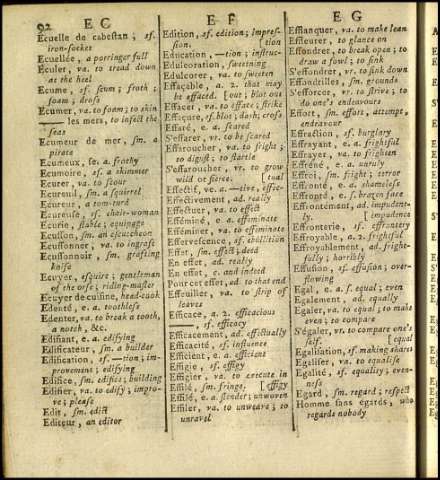 92 E C
Ecuelle de cabestan; sf.
iron-socket
Ecuellée, a porringer full
Eculer, va. to tread down
at the heel
Ecume, sf. scum; froth;
foam; dross
Ecumer, va. to foam; to skin
— les mers, to infest the
seas
Ecumeur de mer, sm. a
pirate
Ecumeux, se. a. frothy
Ecumoire, sf. a skimmer
Ecurer, va. to scour
Ecureuil, sm. a squirrel
Ecureur, a tom-turd
Ecureuse, sf. chair-woman
Ecurie, stable; equipage
Ecusson, sm. an escutcheon
Ecussonner, va. to ingraft
Ecussonnoir, sm. grafting
knife
Ecuyer, esquire; gentleman
of the orse; riding-master
Ecuyer de cuisine, head-cook
Edenté, e. a. toothless
Edenter, va. to break a tooth,
a notch, &c.
Edifiant, e. a. edifying
Edificateur, sm. a builder
Edification, sf. —tion; im-
provement; edifying
Edifice, sm. edifice; building
Edifier, va. to edify; impro-
ve; please
Edit, sm. edict
Editeur, an editor
E F
Edition, sf. edition; impres-
sion. tion
Education, —tion; instruc-
Edulcoration, sweetning
Edulcorer, va. to sweeten
Effaçable, a. 2. that may
be effaced. [out; blot out
Effacer, va. to efface; strike
Effaçure, sf. blot; dash; cross
Effaré, e. a. scared
S'effarer, vr. to be scared
Effaroucher, va. to fright;
to disgust; to startle
S'effaroucher, vr. to grow
wild or fierce. [tual
Effectif, ve. a. —tive, effec-
Effectivement, ad. really
Effectuer, va. to effect
Efféminé, e. a. effeminate
Efféminer, va. to effeminate
Effervescence, sf. ebullition
Effet, sm. effect; deed
En effet, ad. really
En effet, e. and indeed
Pour cet effet, ad. to that end
Effeuiller, va. to strip of
leaves
Efficace, a. 2. efficacious
—, sf. efficacy
Efficacement, ad. effectually
Efficacité, sf. influence
Efficient, e. a. efficient
Effigie, sf. effigy
Effigier, va. to execute in
Effilé, sm. fringe, [effigy
Effilé, e. a. slender; unwoven
Effiler, va. to unweave; to
unravel
E G
Efflanquer, va. to make lean
Effleurer, to glance on
Effondrer, to break open; to
draw a fowl; to sink
S'effondrer, vr. to sink down
Effondrilles, sf. grounds
S'efforcer, vr. to strive; to
do one's endeavours
Effort, sm. effort, attempt,
endeavour
Effraction, sf. burglary
Effrayant, e. a. frightful
Effrayer, va. to frighten
Effréné, e. a. unruly
Effroi, sm. fright; terror
Effronté, e. a. shameless
Effronté, e. s. brazen face
Effrontément, ad. impudent-
ly. [impudence
Effronterie, sf. effrontery
Effroyable, a. 2. frightful
Effroyablement, ad. fright-
fully; horribly
Effusion, sf. effusion; over-
flowing
Egal, e. a. s. equal; even
Egalement, ad. equally
Egaler, va. to equal; to make
even; to compare
S'égaler, vr. to compare one's
self. [equal
Egalisation, sf. making shares
Egaliser, va. to equalise
Egalité, sf. equality; even-
ness
Egard, sm. regard; respect
Homme sans égards, who
regards nobody